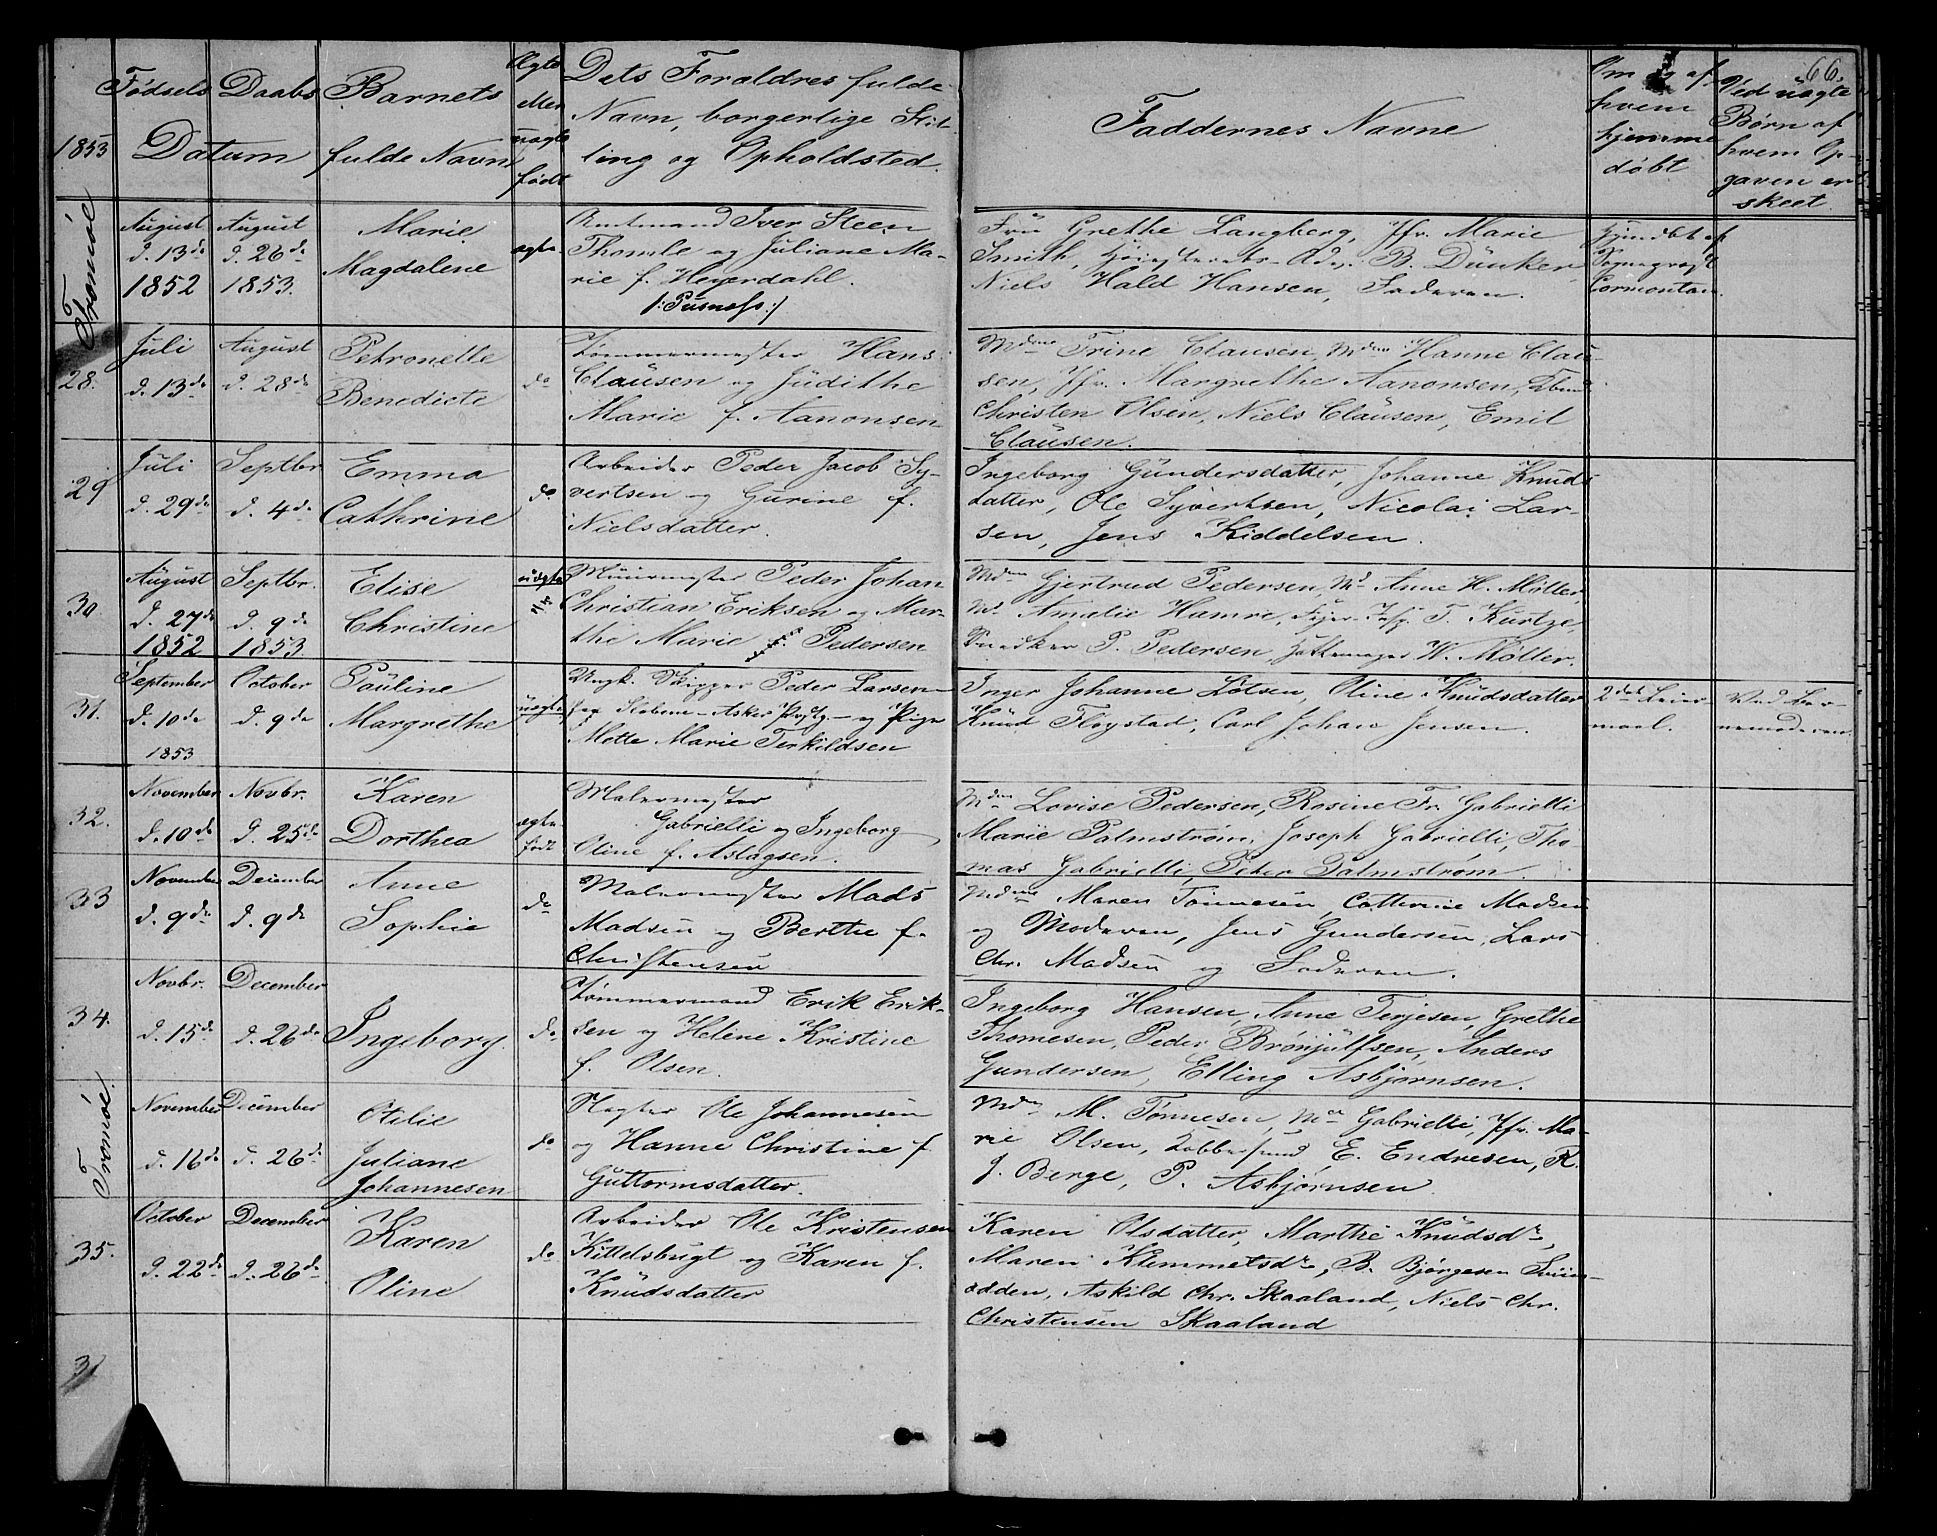 66.
1853
Fødsels Daabs Datum
Barnets fulde Navn
Ægte eller uægte født
Dets Forældres fulde
Navn, borgerlige Stil-
ling og Opholdsted.
Faddernes Navne
Om og af
hvem
hjemme
døbt
Ved uægte
Børn af
hvem Op-
gaven er
skeet.
Tromöe
August d. 13de 1852
August d. 26de 1853.
Marie
Magdalene
ægte
Amtmand Iver Steen
Thomle og Juliane Ma-
rie f. Heyerdahl.
/: Pusnæs :/
Frü Grethe Langberg, Jfr. Marie
Smith, Høiesterets-Adv. B. Dünker,
Niels Hald Hansen, Faderen.
Hjemdøbt af
Sognepræst
Cormontan.
28.
Juli d. 13de
August d. 28de
Petronelle
Benedicte
do
Tømmermester Hans
Claüsen og Jüdithe
Marie f. Aanonsen
Mdme Trine Clausen, Mdme Hanne Clau-
sen, Jfr. Margrethe Aanonsen,
Christen Olsen, Niels Claüsen, Emil
Claüsen.
29
Juli d. 29de
Septbr d. 4de
Emma
Cathrine
do
Arbeider Peder Jacob Sy-
vertsen og Gurine f.
Nielsdatter.
Ingeborg Gündersdatter, Johanne Knüds
datter, Ole Syvertsen, Nicolai Lar-
sen, Jens Kiddelsen.
30.
August d. 27de 1852
Septbr. d. 9de 1853
Elise
Christine
uægte
Müürmester Peder Johan
Christian Eriksen og Mar-
the Marie f. Pedersen
Mdme Gjertrud Pedersen, Md Anne H. Møller,
Md Amalie Hamre, Fyer-Insp. T. Kürtze,
Snedker P. Pedersen, Hattemager W. Møller.
31.
September d. 10de 1853
October d. 9de
Paüline
Margrethe
uægte
Ungk. Skipper Peder Larsen
fra Askers Prstg. og Pige
Mette Marie Terkildsen
Inger Johanne Lötsen, Oline Knüdsdatter
Knüd Fløystad, Carl Johan Jensen.
2det Leier-
maal.
Ved Bar-
nemoderen.
32.
November d. 10de
Novbr. d. 25de
Karen
Dorthea
ægte
født
Malermester
Gabrielli og Ingeborg
Oline f. Aslagsen.
Mdme Lovise Pedersen, Rosine Fr. Gabrielli
Marie Palmstrøm, Joseph Gabrielli, Tho
mas Gabrielli, Peter Palmstrøm.
33
November d. 9de
December d. 9de
Anne
Sophie
do
Malermester Mads
Madsen og Berthe f.
Christensen
Mdme Maren Tönnesen, Catherine Madsen
og Moderen, Jens Gundersen, Lars
Chr. Madsen og Faderen.
34.
Novbr. d. 15de
December d. 26de
Ingeborg.
do
Tømmermand Erik Erik-
sen og Helene Kristine
f. Olsen.
Ingeborg Hansen, Anne Terjesen, Grethe
Thomesen, Peder Brønjülfsen, Anders
Gundersen, Elling Asbjørnsen.
Tromöe.
November d. 16de
December d. 26de
Otilie
Juliane
Johannesen
do
Slagter Ole Johannesen
og Hanne Christine f.
Guttormsdatter.
Mdme M. Tønnesen, Mme Gabrielli, Jfr. Ma-
rie Olsen, E. Endresen, K.
J. Berge, P. Asbjørnsen
35.
October d. 22de
December d. 26de
Karen
Oline
do
Arbeider Ole Kristensen
Kittelsbugt og Karen f.
Knüdsdatter
Karen Olsdatter, Marthe Knüdsdr,
Maren Klemmetsdr, B. Bjørgesen Sviin-
odden, Askild Chr. Skaaland, Niels Chr.
Christensen Skaaland
3